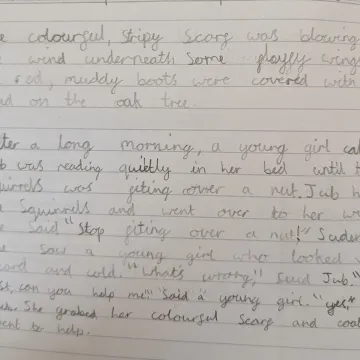 coloursul, stripy scars was blowing
wind underneath some
red, muddy boots were covered with
on the oak tree.
a long morning, a young girl
was reading quietly in her bed until
was fiting over a nut. Jub
Squirrels and went over to her
said "Stop fiting over a nut!" Suden
saw a young girl who looked
and cold. "What's wrong," said Jub.
can you help me" said a young girl. "yes,"
She grabed her coloursul scars and
to help.